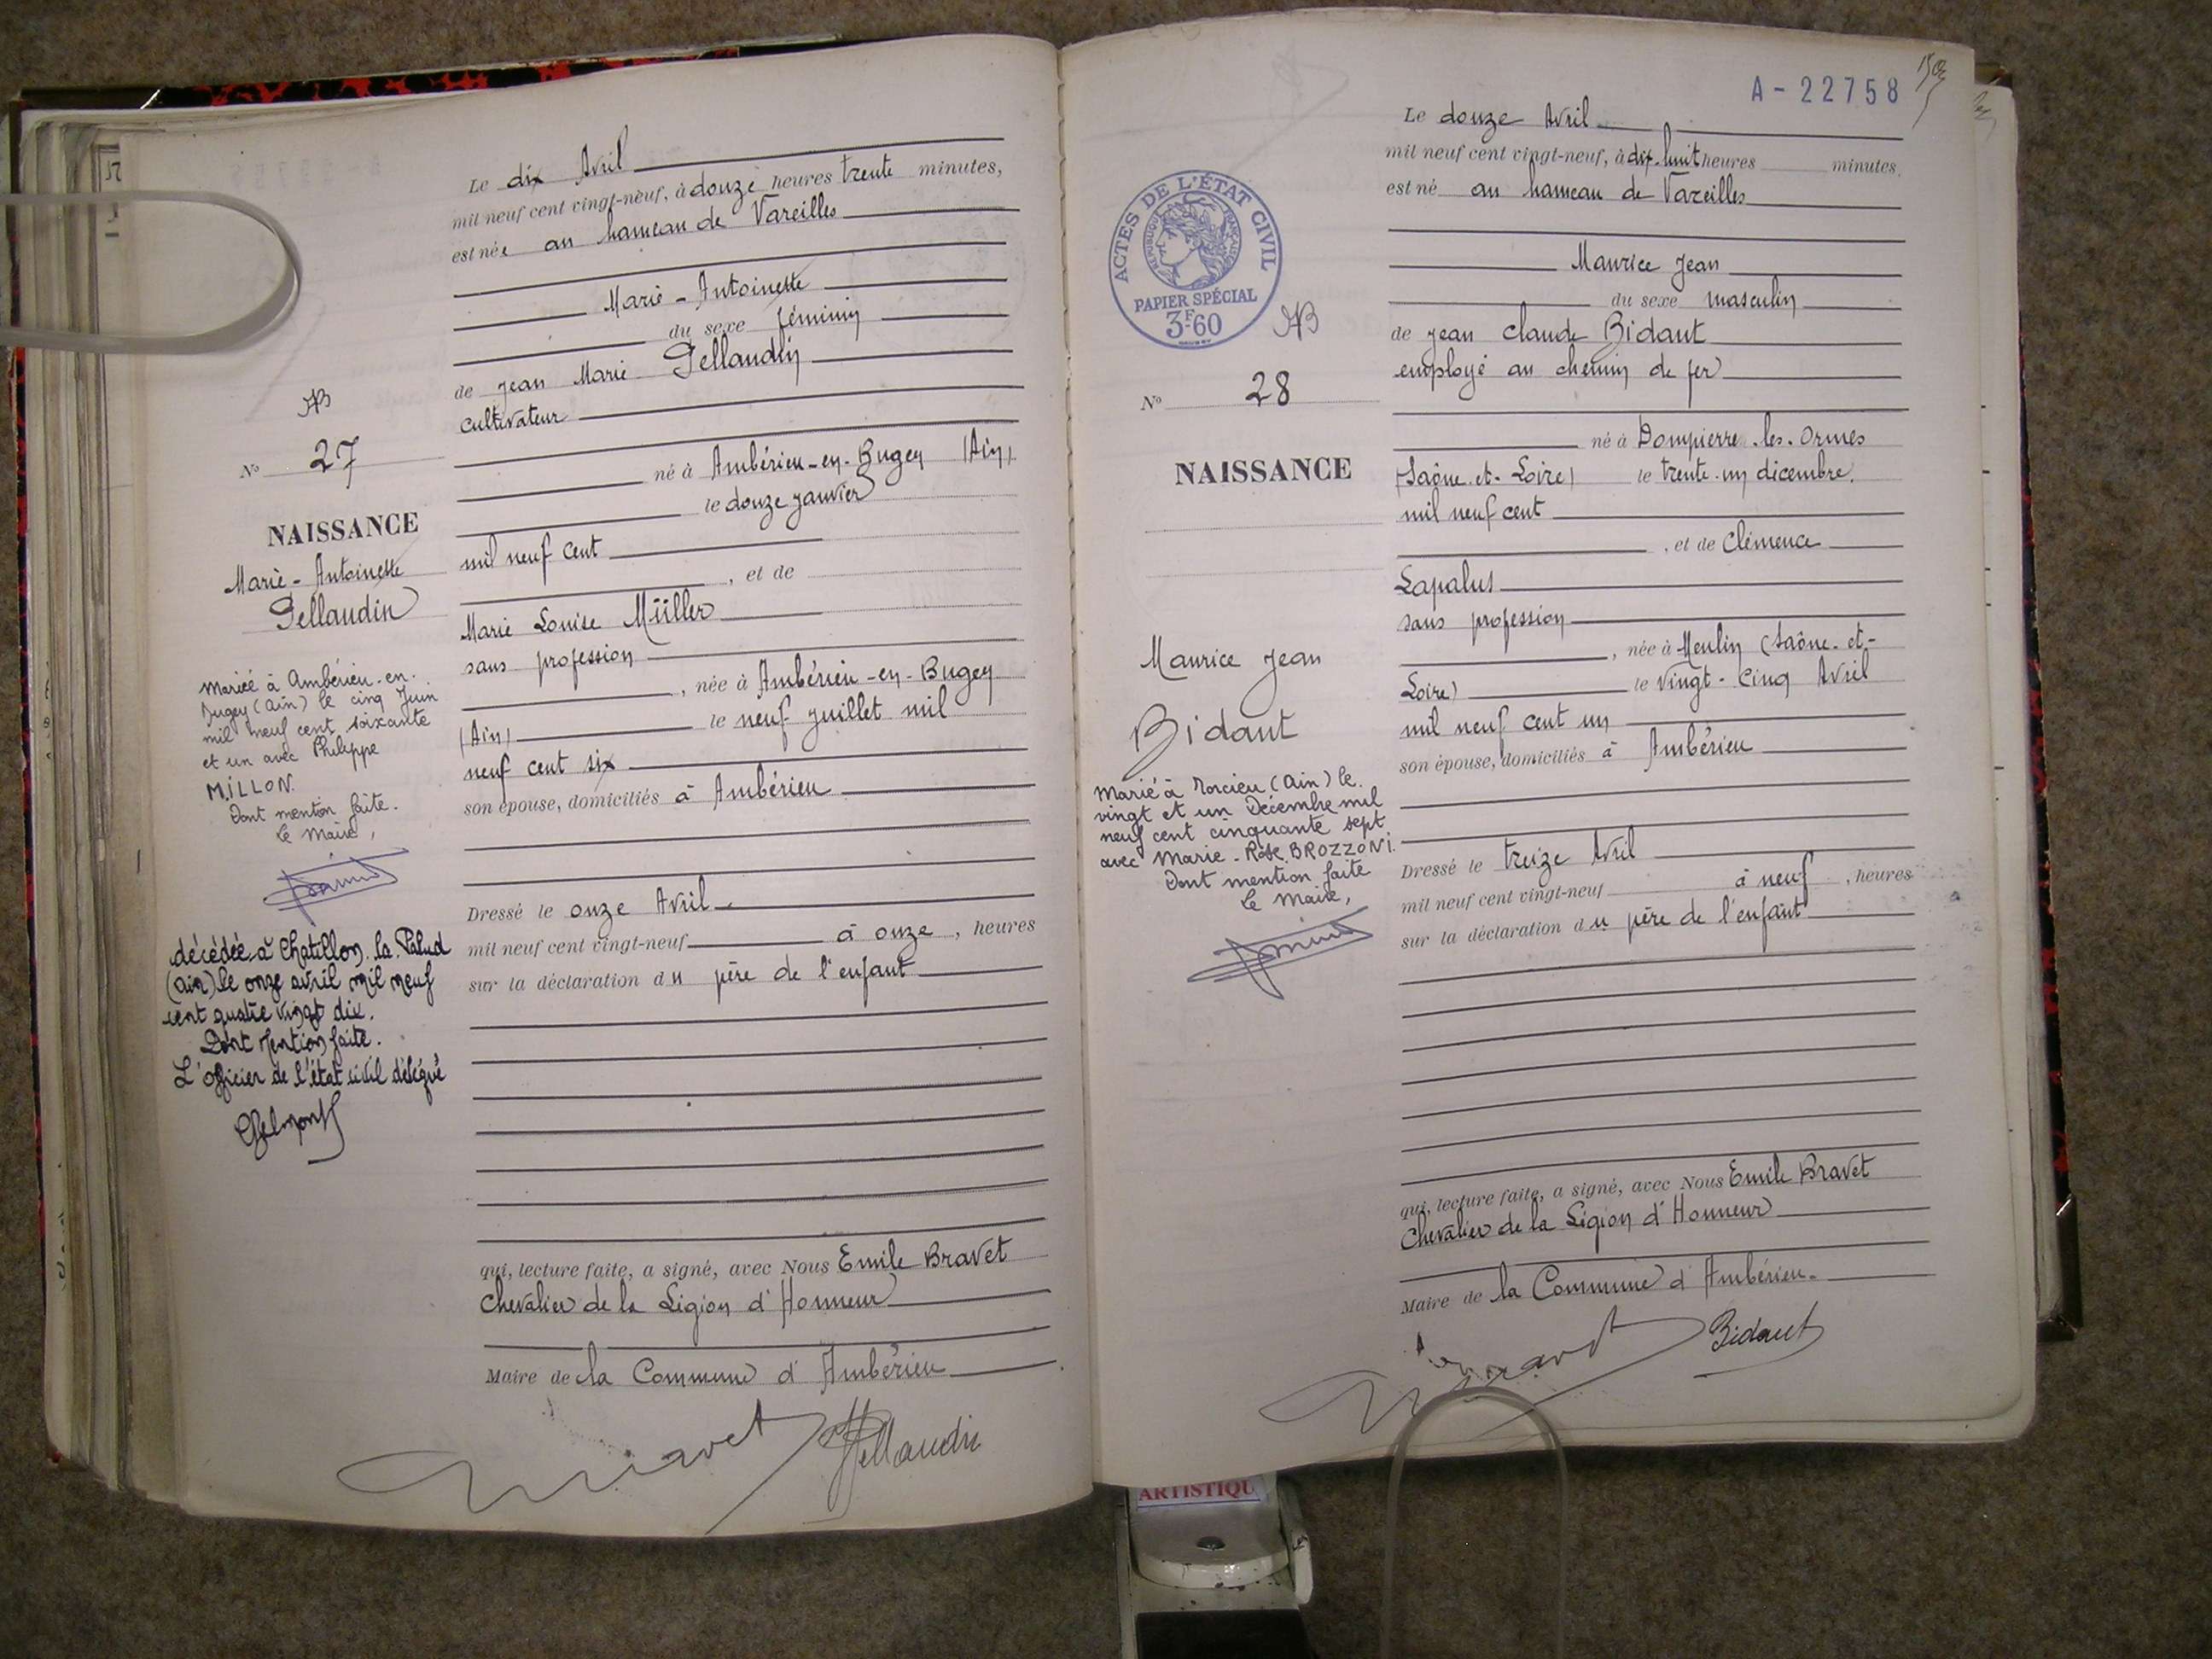 Le dix Avril
mil neuf cent vingt-neuf, à douze heures trente minutes,
est née au hameau de Vareilles
Marie-Antoinette
du sexe féminin
de Jean Marie Pellaudin
cultivateur
né à Ambérieu-en-Bugey (Ain)
le douze janvier
mil neuf cent
, et de
Marie Louise Müller
sans profession
, née à Ambérieu-en-Bugey
(Ain) le neuf juillet mil
neuf cent six
son épouse, domiciliés à Ambérieu
Dressé le onze Avril
mil neuf cent vingt-neuf à onze, heures
sur la déclaration du père de l'enfant
qui, lecture faite, a signé, avec Nous Emile Bravet
Chevalier de la Légion d'Honneur
Maire de la Commune d'Ambérieu
Bravet Pellaudin
N° 27
NAISSANCE
Marie-Antoinette
Pellaudin
Mariée à Ambérieu-en-
Bugey (Ain) le cinq Juin
mil neuf cent soixante
et un avec Philippe
MILLON.
Dont mention faite.
Le Maire,
décédée à Chatillon la Palud
(Ain) le onze avril mil neuf
cent quatre vingt dix.
Dont Mention faite.
L'officier de l'état civil délégué
A-22758
Le douze Avril
mil neuf cent vingt-neuf, à dix-huit heures minutes,
est né au hameau de Vareilles
Maurice Jean
du sexe masculin
de Jean Claude Bidaut
employé au chemin de fer
né à Dompierre-les-Ormes
(Saône-et-Loire) le trente-un décembre
mil neuf cent
, et de Clémence
Lapalus
sans profession
, née à Meulin (Saône-et-
Loire) le vingt-cinq Avril
mil neuf cent un
son épouse, domiciliés à Ambérieu
Dressé le treize Avril
mil neuf cent vingt-neuf à neuf, heures
sur la déclaration du père de l'enfant
qui, lecture faite, a signé, avec Nous Emile Bravet
Chevalier de la Légion d'Honneur
Maire de la Commune d'Ambérieu.
Bravet Bidaut
ACTES DE L'ÉTAT CIVIL
RÉPUBLIQUE FRANÇAISE
PAPIER SPÉCIAL
3F60
N° 28
NAISSANCE
Maurice Jean
Bidaut
Marié à Torcieu (Ain) le
vingt et un Décembre mil
neuf cent cinquante sept
avec Marie-Rose BROZZONI.
Dont mention faite
Le Maire,
ARTISTIQU